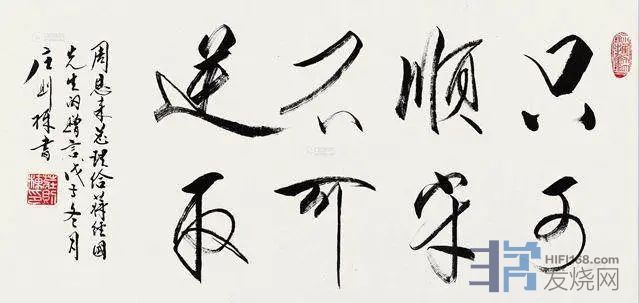 只可
顺
不可
逆取
周恩来总理给蒋经国
先生的赠言戊子冬月
庄则栋书
莊則
棟印
HIFI168.com
发烧网